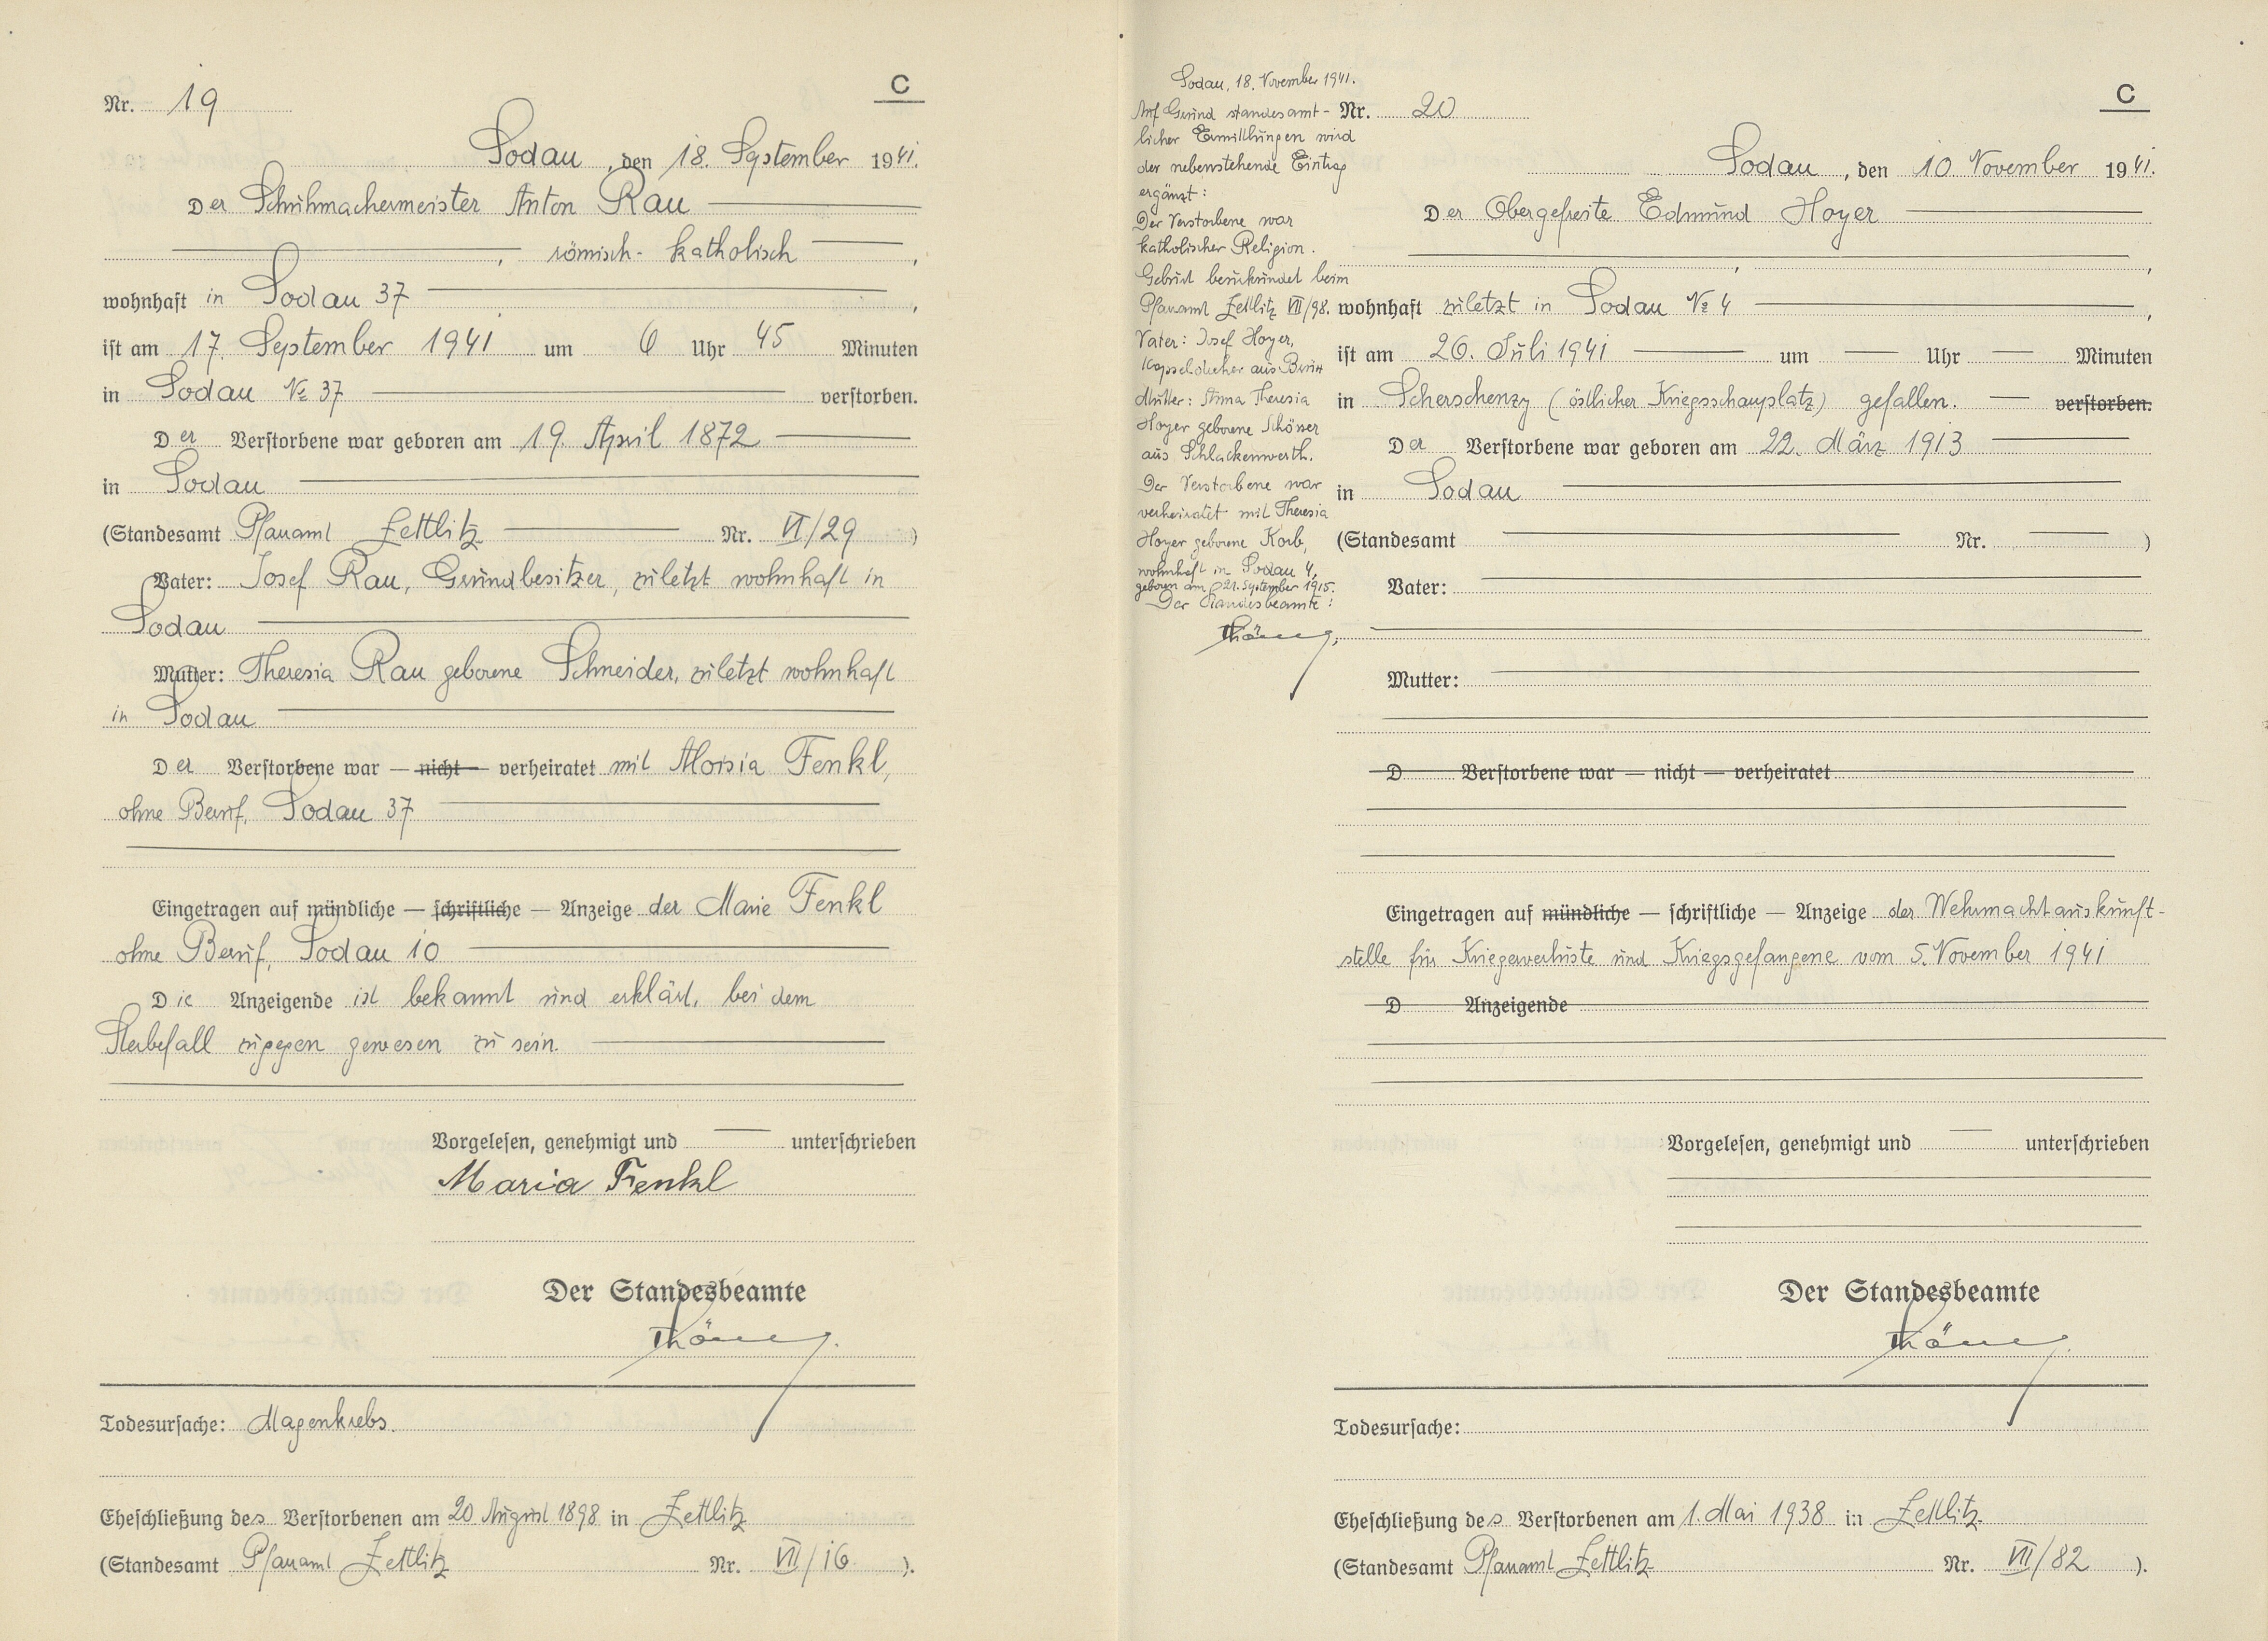 C
Nr. 19
Sodau, den 18. September 1941.
Der Schuhmachermeister Anton Rau
, römisch-katholisch,
wohnhaft in Sodau 37,
ist am 17. September 1941 um 6 Uhr 45 Minuten
in Sodau № 37 verstorben.
Der Verstorbene war geboren am 19. April 1872
in Sodau
(Standesamt Pfarramt Zettlitz Nr. VI/29)
Vater: Josef Rau, Grundbesitzer, zuletzt wohnhaft in
Sodau
Mutter: Theresia Rau geborene Schneider, zuletzt wohnhaft
in Sodau
Der Verstorbene war — nicht — verheiratet mit Aloisia Fenkl,
ohne Beruf, Sodau 37
Eingetragen auf mündliche — schriftliche — Anzeige der Marie Fenkl
ohne Beruf, Sodau 10
Die Anzeigende ist bekannt und erklärt, bei dem
Sterbefall zugegen gewesen zu sein.
Vorgelesen, genehmigt und unterschrieben
Maria Fenkl
Der Standesbeamte
Todesursache: Magenkrebs.
Eheschließung des Verstorbenen am 20 August 1898 in Zettlitz
(Standesamt Pfarramt Zettlitz Nr. VII/16).
Sodau, 18. November 1941.
Auf Grund standesamt-
licher Ermittlungen wird
der nebenstehende Eintrag
ergänzt:
Der Verstorbene war
katholischer Religion.
Geburt beurkundet beim
Pfarramt Zettlitz VII/98.
Vater: Josef Hoyer,
aus
Mutter: Anna Theresia
Hoyer geborene
aus Schlackenwerth.
Der Verstorbene war
verheiratet mit Theresia
Hoyer geborene Korb,
wohnhaft in Sodau 4,
geboren am 21. September 1915.
Der Standesbeamte:
C
Nr. 20
Sodau, den 10 November 1941.
Der Obergefreite Edmund Hoyer
,
wohnhaft zuletzt in Sodau № 4,
ist am 26. Juli 1941 um Uhr Minuten
in Scherschenzy (östlicher Kriegsschauplatz) gefallen. verstorben.
Der Verstorbene war geboren am 22. März 1913
in Sodau
(Standesamt Nr. )
Vater:
Mutter:
D Verstorbene war — nicht — verheiratet
Eingetragen auf mündliche — schriftliche — Anzeige der Wehrmachtauskunft-
stelle für Kriegerverluste und Kriegsgefangene vom 5. November 1941
D Anzeigende
Vorgelesen, genehmigt und unterschrieben
Der Standesbeamte
Todesursache:
Eheschließung des Verstorbenen am 1. Mai 1938 in Zettlitz
(Standesamt Pfarramt Zettlitz Nr. VII/82).